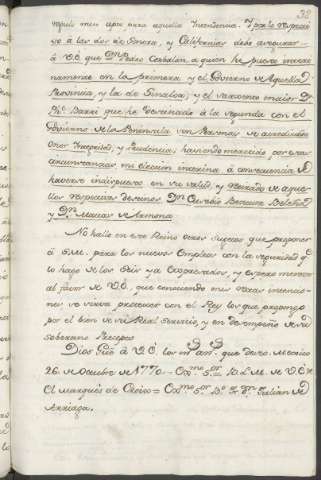 38
sugeto mui apto para aquella Intendencia. Y por lo respecti-
vo à las dos de Sonora, y Californias debo asegurar
à V.E. que Dn. Pedro Corbalàn, à quien he puesto interi-
namente en la primera y el Govierno de aquella
Provincia, y la de Sinaloa; y el sargento maior Dn.
Phe. Barri que he destinado à la segunda con el
Govierno de la Peninsula son Personas de acreditado
honor, Integridad, y Prudencia, haviendo merecido por estas
circunstancias mi eleccion interina à consequencia de
haverse indispuesto en su salud, y retirado de aque-
llos respectivos destinos Dn. Eusebio Ventura Beleña
y Dn. Matias de Armona.
No hallo en este Reino otros sugetos que proponer
à S.M. para los nuevos Empleos con la seguridad que
lo hago de los seis ya expresados, y espero merecer
al favor de V.E. que conociendo mis rectas intencio-
nes se sirva protexer con el Rey los que propongo
por el bien de su Real servicio, y en desempeño de sus
soberanos Preceptos.
Dios gue. à V.E. los ms. as. que deseo. Mexico
26. de Octubre de 1770 = Exmo. Sor. = B.L.M. de V.E. =
El Marqués de Croix = Exmo. Sor. Bo. Fr. Dn. Julian de
Arriaga.